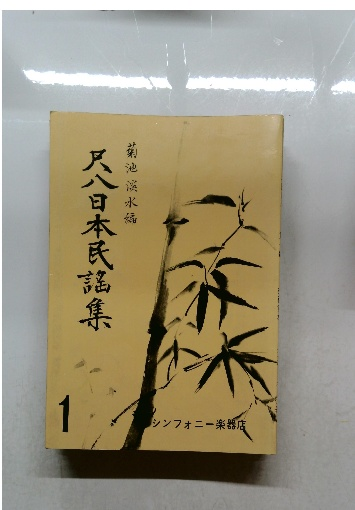 尺八日本民謡集
菊池淡水編
1
シンフォニー楽器店